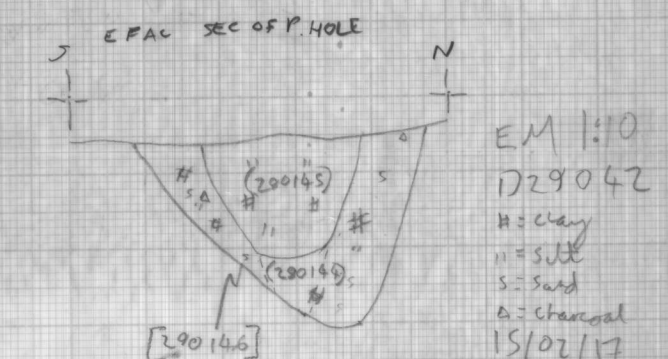 E FAC SEC OF P. HOLE
S N
(290145)
(290144)
[290146]
EM 1:10
D29042
# = clay
,, = silt
S = Sand
△ = charcoal
15/02/17